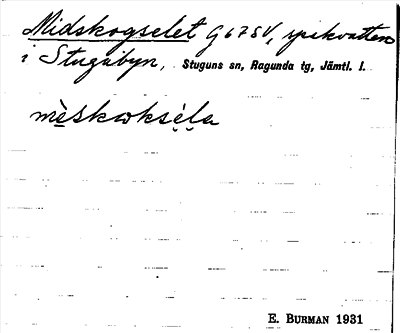 Midskogselet G67SV, spakvatten
i Stugubyn, Stuguns sn, Ragunda tg, Jämtl. l.
mèskωksẹ́ḷa
E. BURMAN 1931